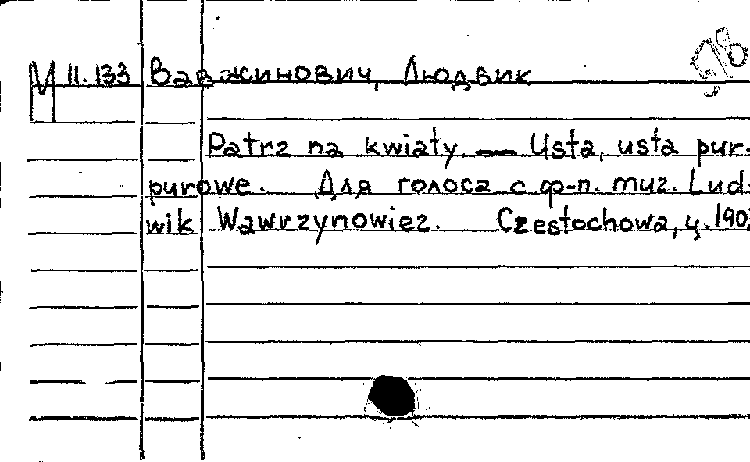 98
М 11.133 Вавжинович, Людвик
Patrz na kwiaty. — Usta, usta pur-
purowe. Для голоса с ф-п. muz. Lud-
wik Wawrzynowiez. Czestochowa, ц. 190